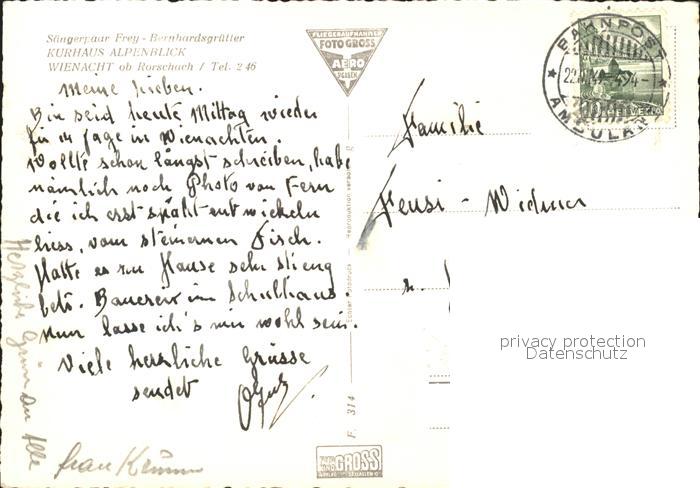 Sängerpaar Frey - Bernhardsgrütter
KURHAUS ALPENBLICK
WIENACHT ob Rorschach / Tel. 2 46
Meine Lieben.
Bin seid heute Mittag wieder
für 14 Tage in Wienachten.
Wollte schon längst schreiben, habe
nämlich noch Photo von Fern
die ich erst späht entwickeln
liess, vom steinernen Tisch.
Hatte es zu Hause sehr streng
betr. Bauerei im Schulhaus.
Nun lasse ich's mir wohl sein.
Viele herzliche Grüsse
sendet
Herzliche Grüsse an Alle
Frau
FLIEGERAUFNAHME
FOTO GROSS
AERO
ST. GALLEN
Reproduktion
F. 314
GROSS
BAHNPOST
AMBULANT
Familie
Feusi - Widmer
privacy protection
Datenschutz